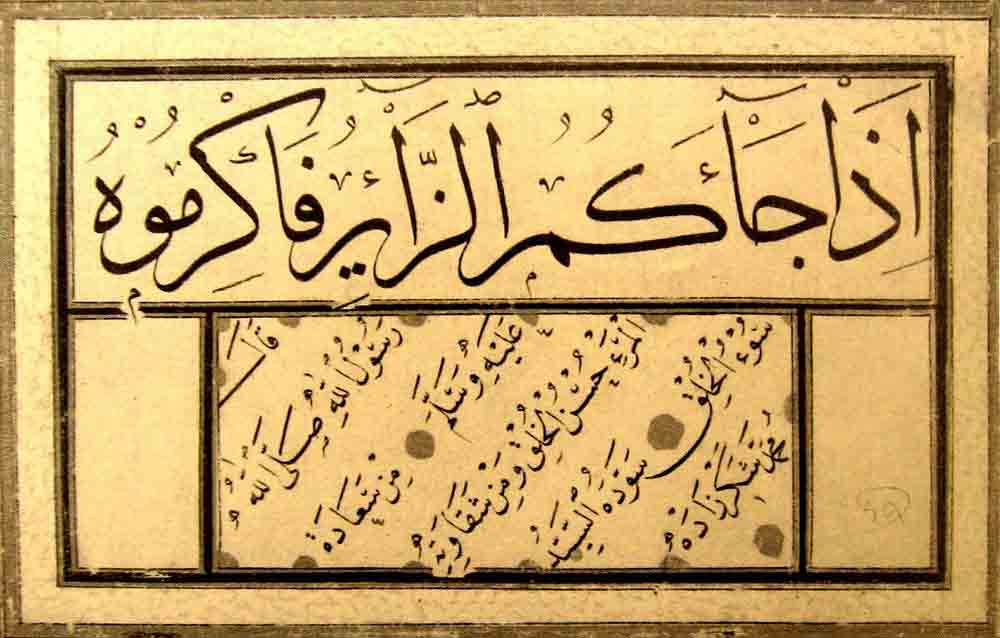 اِذَا جَآءَكُمُ الزَّائِرُ فَاَكْرِمُوهُ
قال
رسول الله صلى الله
عليه وسلم من سعادة
المرء حسن الخلق ومن شقاوته
سوء الخلق سوده السيد
محمد شاكر زاده